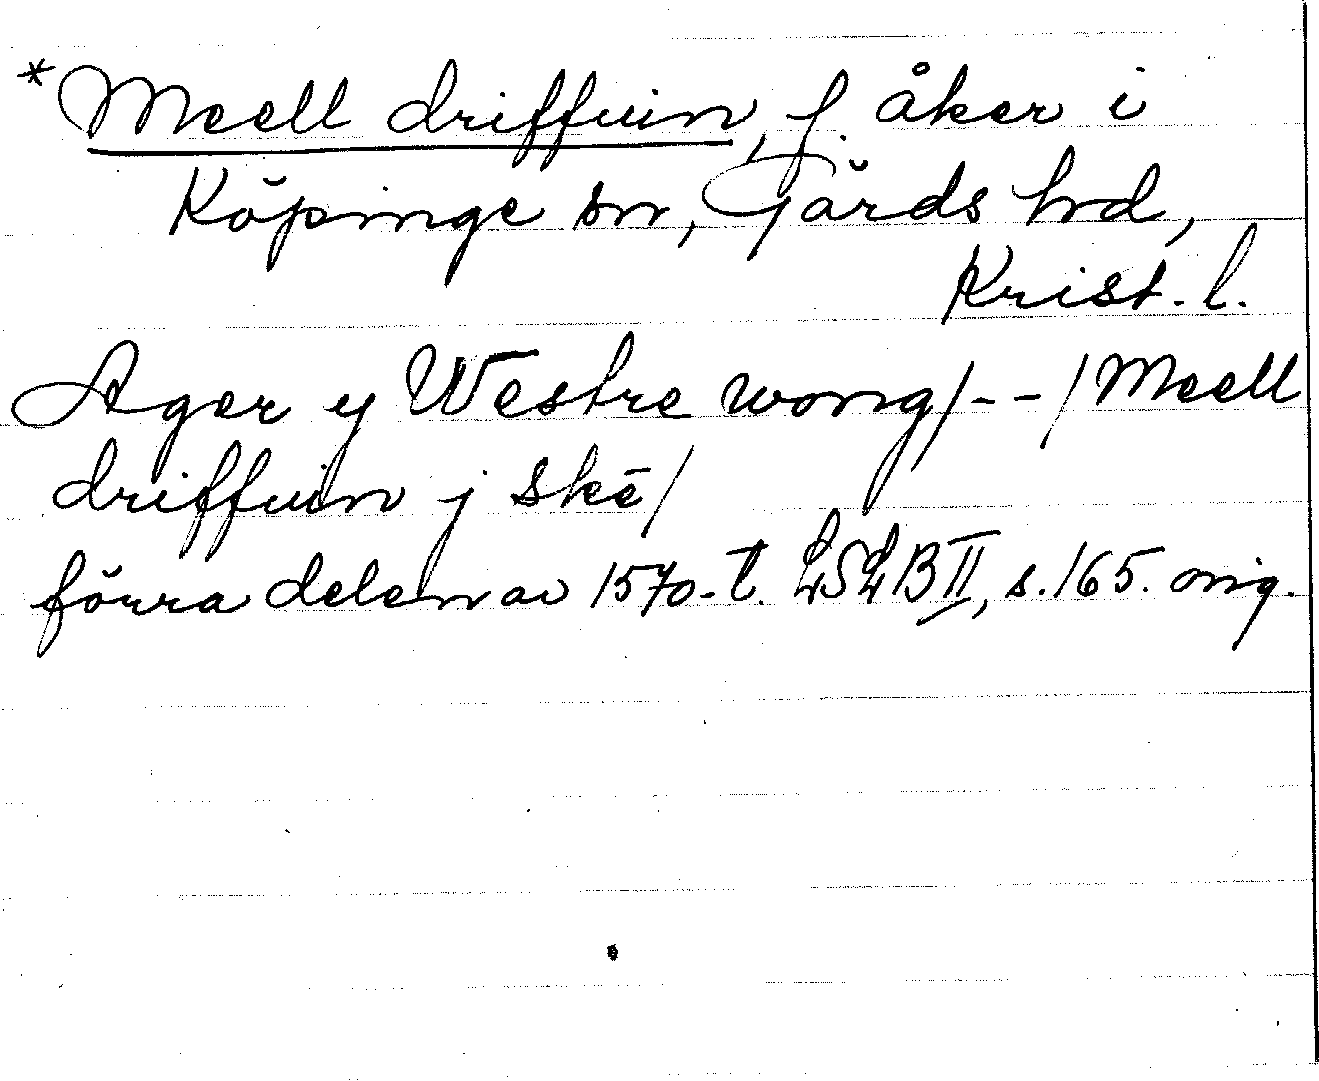 *Meell driffuin, f. åker i
Köpinge sn, Gärds hd,
Krist. l.
Ager y Westre wong/--/Meell
driffuin j skē/
förra delen av 1570-t. LSLB II, s. 165. orig.